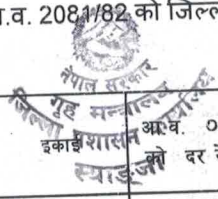 .व. 2081/82 को जिल्ल
नेपाल सरकार
गृह मन्त्रालय
जिल्ला प्रशासन कार्यालय
स्याङ्जा
इकाई
आ.व. ०
को दर